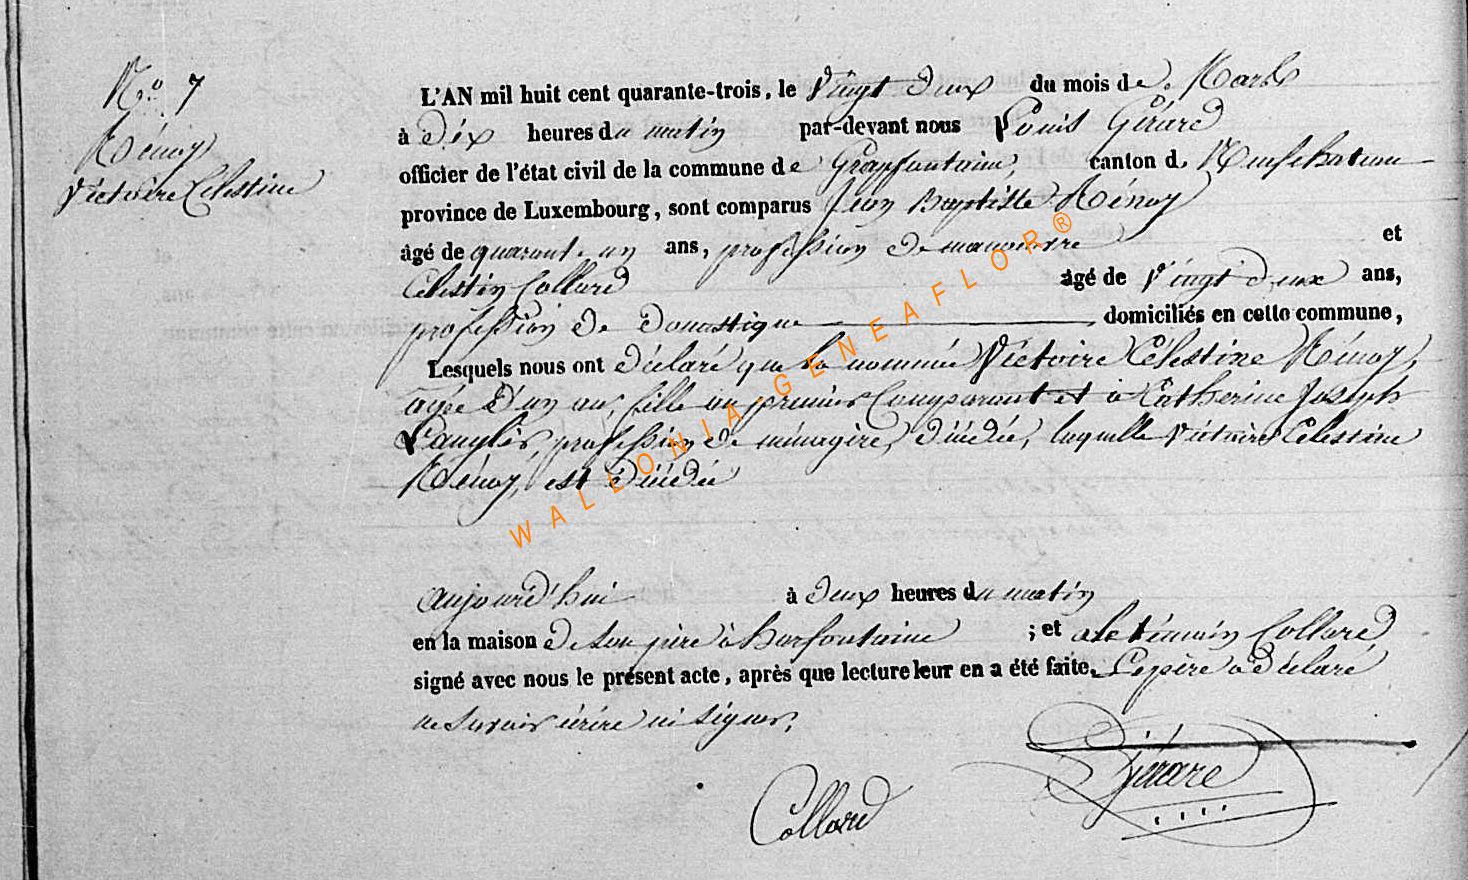 N.o 7
Hénoy
Victoire Célestine
L'AN mil huit cent quarante-trois, le Vingt deux du mois de Mars
à dix heures du matin par-devant nous Louis Gérard
officier de l'état civil de la commune de Grapfontaine, canton de Neufchateau
province de Luxembourg, sont comparus Jean Baptiste Hénoy
âgé de quarante un ans, profession de manoeuvre et
Célestin Collard âgé de Vingt deux ans,
profession de domestique domiciliés en cette commune,
Lesquels nous ont déclaré que la nommée Victoire Célestine Hénoy,
agée d'un an, fille au premier Comparant et à Catherine Joseph
Langlois, profession de ménagère, décédée, laquelle Victoire Célestine
Hénoy, est décédée
aujourd'hui à deux heures du matin
en la maison de son père à harfontaine ; et a le témoin Collard
signé avec nous le présent acte, après que lecture leur en a été faite. Le père a déclaré
ne savoir écrire ni signer.
Collard
Gérard
WALLONIA-GENEAFLOR®